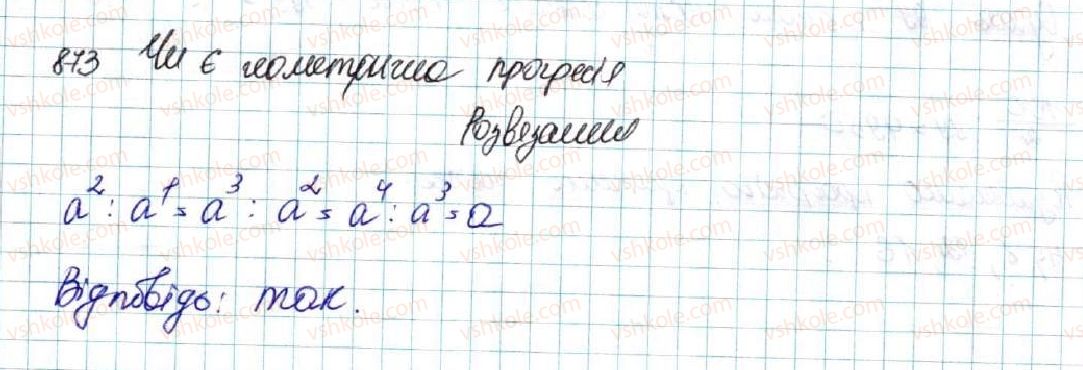 873 Чи є геометрична прогресія
Розвезання
a² : a¹ = a³ : a² = a⁴ : a³ = a
Відповідь: так.